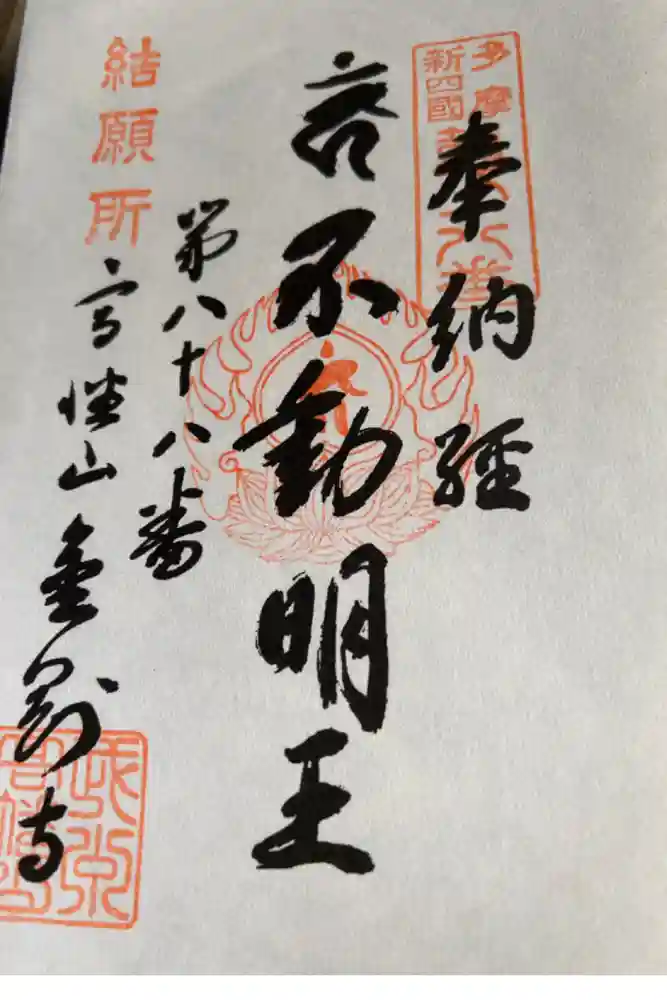 多摩
新四國
奉納経
不動明王
第八十八番
結願所
高幡山金剛寺